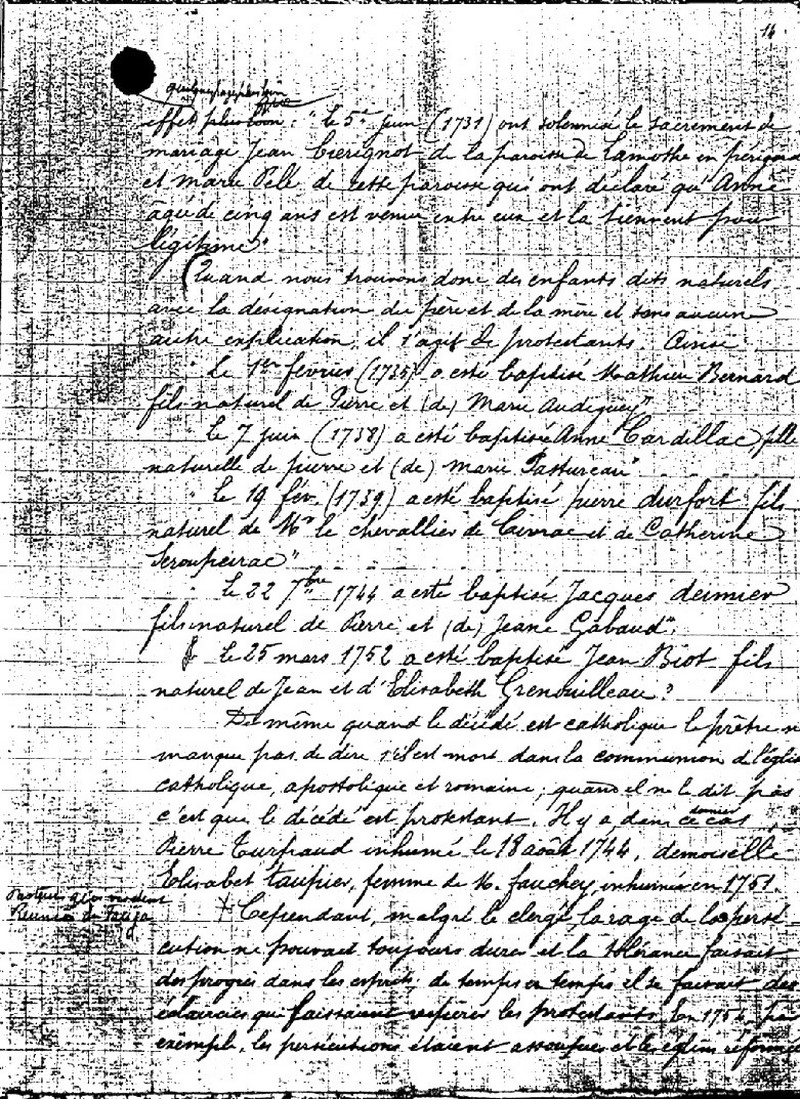 16.
quelques pages plus loin
effet plus loin : "le 5e juin (1731) ont solennisé le sacrement de
mariage Jean de la paroisse de Lamothe en périgord
et Marie Pelé de cette paroisse qui ont déclaré qu'Anne
agée de cinq ans est venue entre eux et la tiennent pour
légitime".
Quand nous trouvons donc des enfants dits naturels
avec la désignation du père et de la mère et sans aucune
autre explication, il s'agit de protestants. Ainsi
"Le 1er février (1735) a esté baptisé Mathieu Bernard
fils naturel de Pierre et (de) Marie Audiguey"
Le 7 juin (1738) a esté baptisée Anne Cardillac, fille
naturelle de pierre et (de) marie Pastureau"
"Le 19 fév. (1739) a esté baptisé pierre durfort fils
naturel de Mr le chevallier de Civrac et de Catherine
Seroupeirac"
"Le 22 7bre 1744 a esté baptisé Jacques dernier
fils naturel de Pierre et (de) Jeane Gabaud".
Le 25 mars 1752 a esté baptisé Jean Biot fils
naturel de Jean et d'Elisabeth Grenouilleau ?
De même quand le décédé est catholique le prêtre n
manque pas de dire s'il est mort dans la communion de l'églis
catholique, apostolique et romaine ; quand il ne le dit pas
c'est que le décédé est protestant. Il y a dans ce dernier cas
Pierre Turpaud inhumé le 18 août 1744, demoiselle
Elisabet Taupier, femme de M. fauchey, inhumée en 1751.
Réunion de
+ Cependant, malgré le clergé, la rage de la persé
cution ne pouvait toujours durer et la tolérance faisait
des progrès dans les esprits, de temps en temps il se faisait des
éclaircies qui faisaient respirer les protestants. En 1754, par
exemple, les persécutions étaient assoupies et les églises réformées